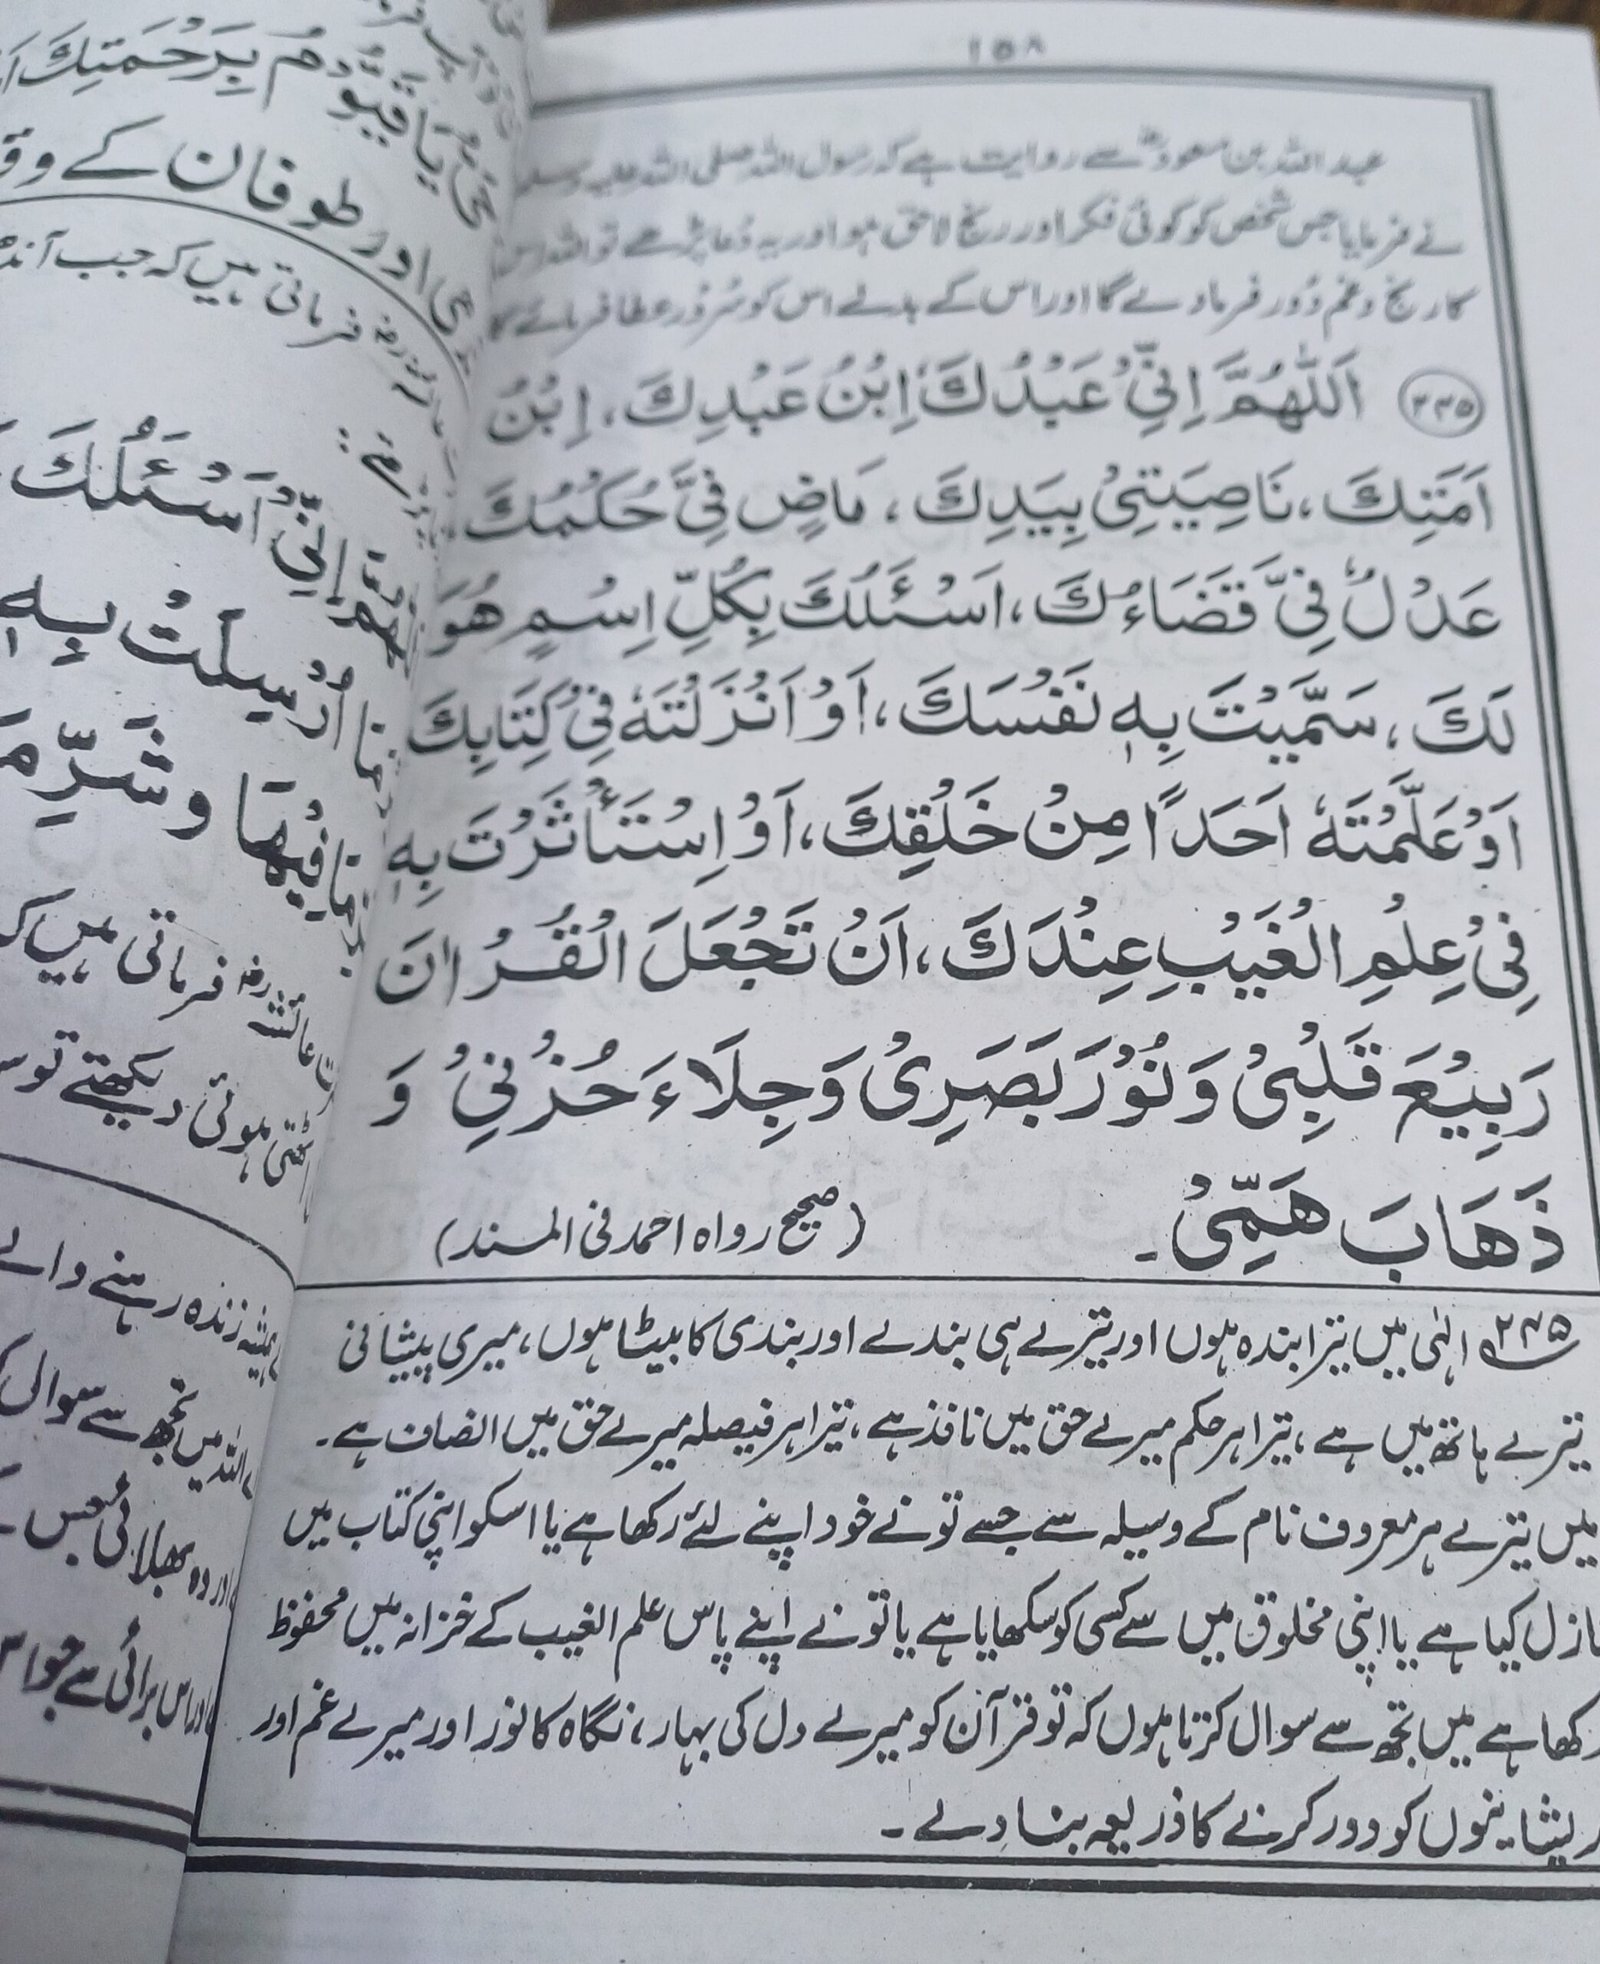 ۱۵۸
عبد اللہ بن مسعودؓ سے روایت ہے کہ رسول اللہ صلی اللہ علیہ وسلم
نے فرمایا جس شخص کو کوئی فکر اور رنج لاحق ہو اور یہ دُعا پڑھے تو اللہ اس
کا رنج و غم دُور فرما دے گا اور اس کے بدلے اس کو سُرور عطا فرمائے گا
۲۳۵ اَللّٰهُمَّ اِنِّیْ عَبْدُكَ، اِبْنُ عَبْدِكَ، اِبْنُ
اَمَتِكَ، نَاصِیَتِیْ بِیَدِكَ، مَاضٍ فِیَّ حُكْمُكَ،
عَدْلٌ فِیَّ قَضَاءُكَ، اَسْئَلُكَ بِكُلِّ اِسْمٍ هُوَ
لَكَ، سَمَّیْتَ بِهٖ نَفْسَكَ، اَوْ اَنْزَلْتَهٗ فِیْ كِتَابِكَ
اَوْ عَلَّمْتَهٗ اَحَدًا مِنْ خَلْقِكَ، اَوْ اِسْتَأْثَرْتَ بِهٖ
فِیْ عِلْمِ الْغَیْبِ عِنْدَكَ، اَنْ تَجْعَلَ الْقُرْاٰنَ
رَبِیْعَ قَلْبِیْ وَنُوْرَ بَصَرِیْ وَجِلَاءَ حُزْنِیْ وَ
ذَهَابَ هَمِّیْ۔ (صحیح رواہ احمد فی المسند)
۲۳۵ الٰہی میں تیرا بندہ ہوں اور تیرے ہی بندے اور بندی کا بیٹا ہوں، میری پیشانی
تیرے ہاتھ میں ہے، تیرا ہر حکم میرے حق میں نافذ ہے، تیرا ہر فیصلہ میرے حق میں انصاف ہے۔
میں تیرے ہر معروف نام کے وسیلہ سے جسے تو نے خود اپنے لئے رکھا ہے یا اسکو اپنی کتاب میں
نازل کیا ہے یا اپنی مخلوق میں سے کسی کو سکھایا ہے یا تو نے اپنے پاس علم الغیب کے خزانہ میں محفوظ
رکھا ہے میں تجھ سے سوال کرتا ہوں کہ تو قرآن کو میرے دل کی بہار، نگاہ کا نور اور میرے غم اور
پریشانیوں کو دور کرنے کا ذریعہ بنا دے۔
یَا قَیُّوْمُ بِرَحْمَتِكَ
اور طوفان کے
فرماتی ہیں کہ جب
اِنِّیْ اَسْئَلُكَ
اُرْسِلَتْ بِهٖ
فِیْهَا وَشَرِّ
عائشہ رضہ فرماتی ہیں
ہوئی دیکھتے تو
ہمیشہ زندہ رہنے والے
اللہ میں تجھ سے سوال
اور وہ بھلائی جس
اور اس برائی سے جو